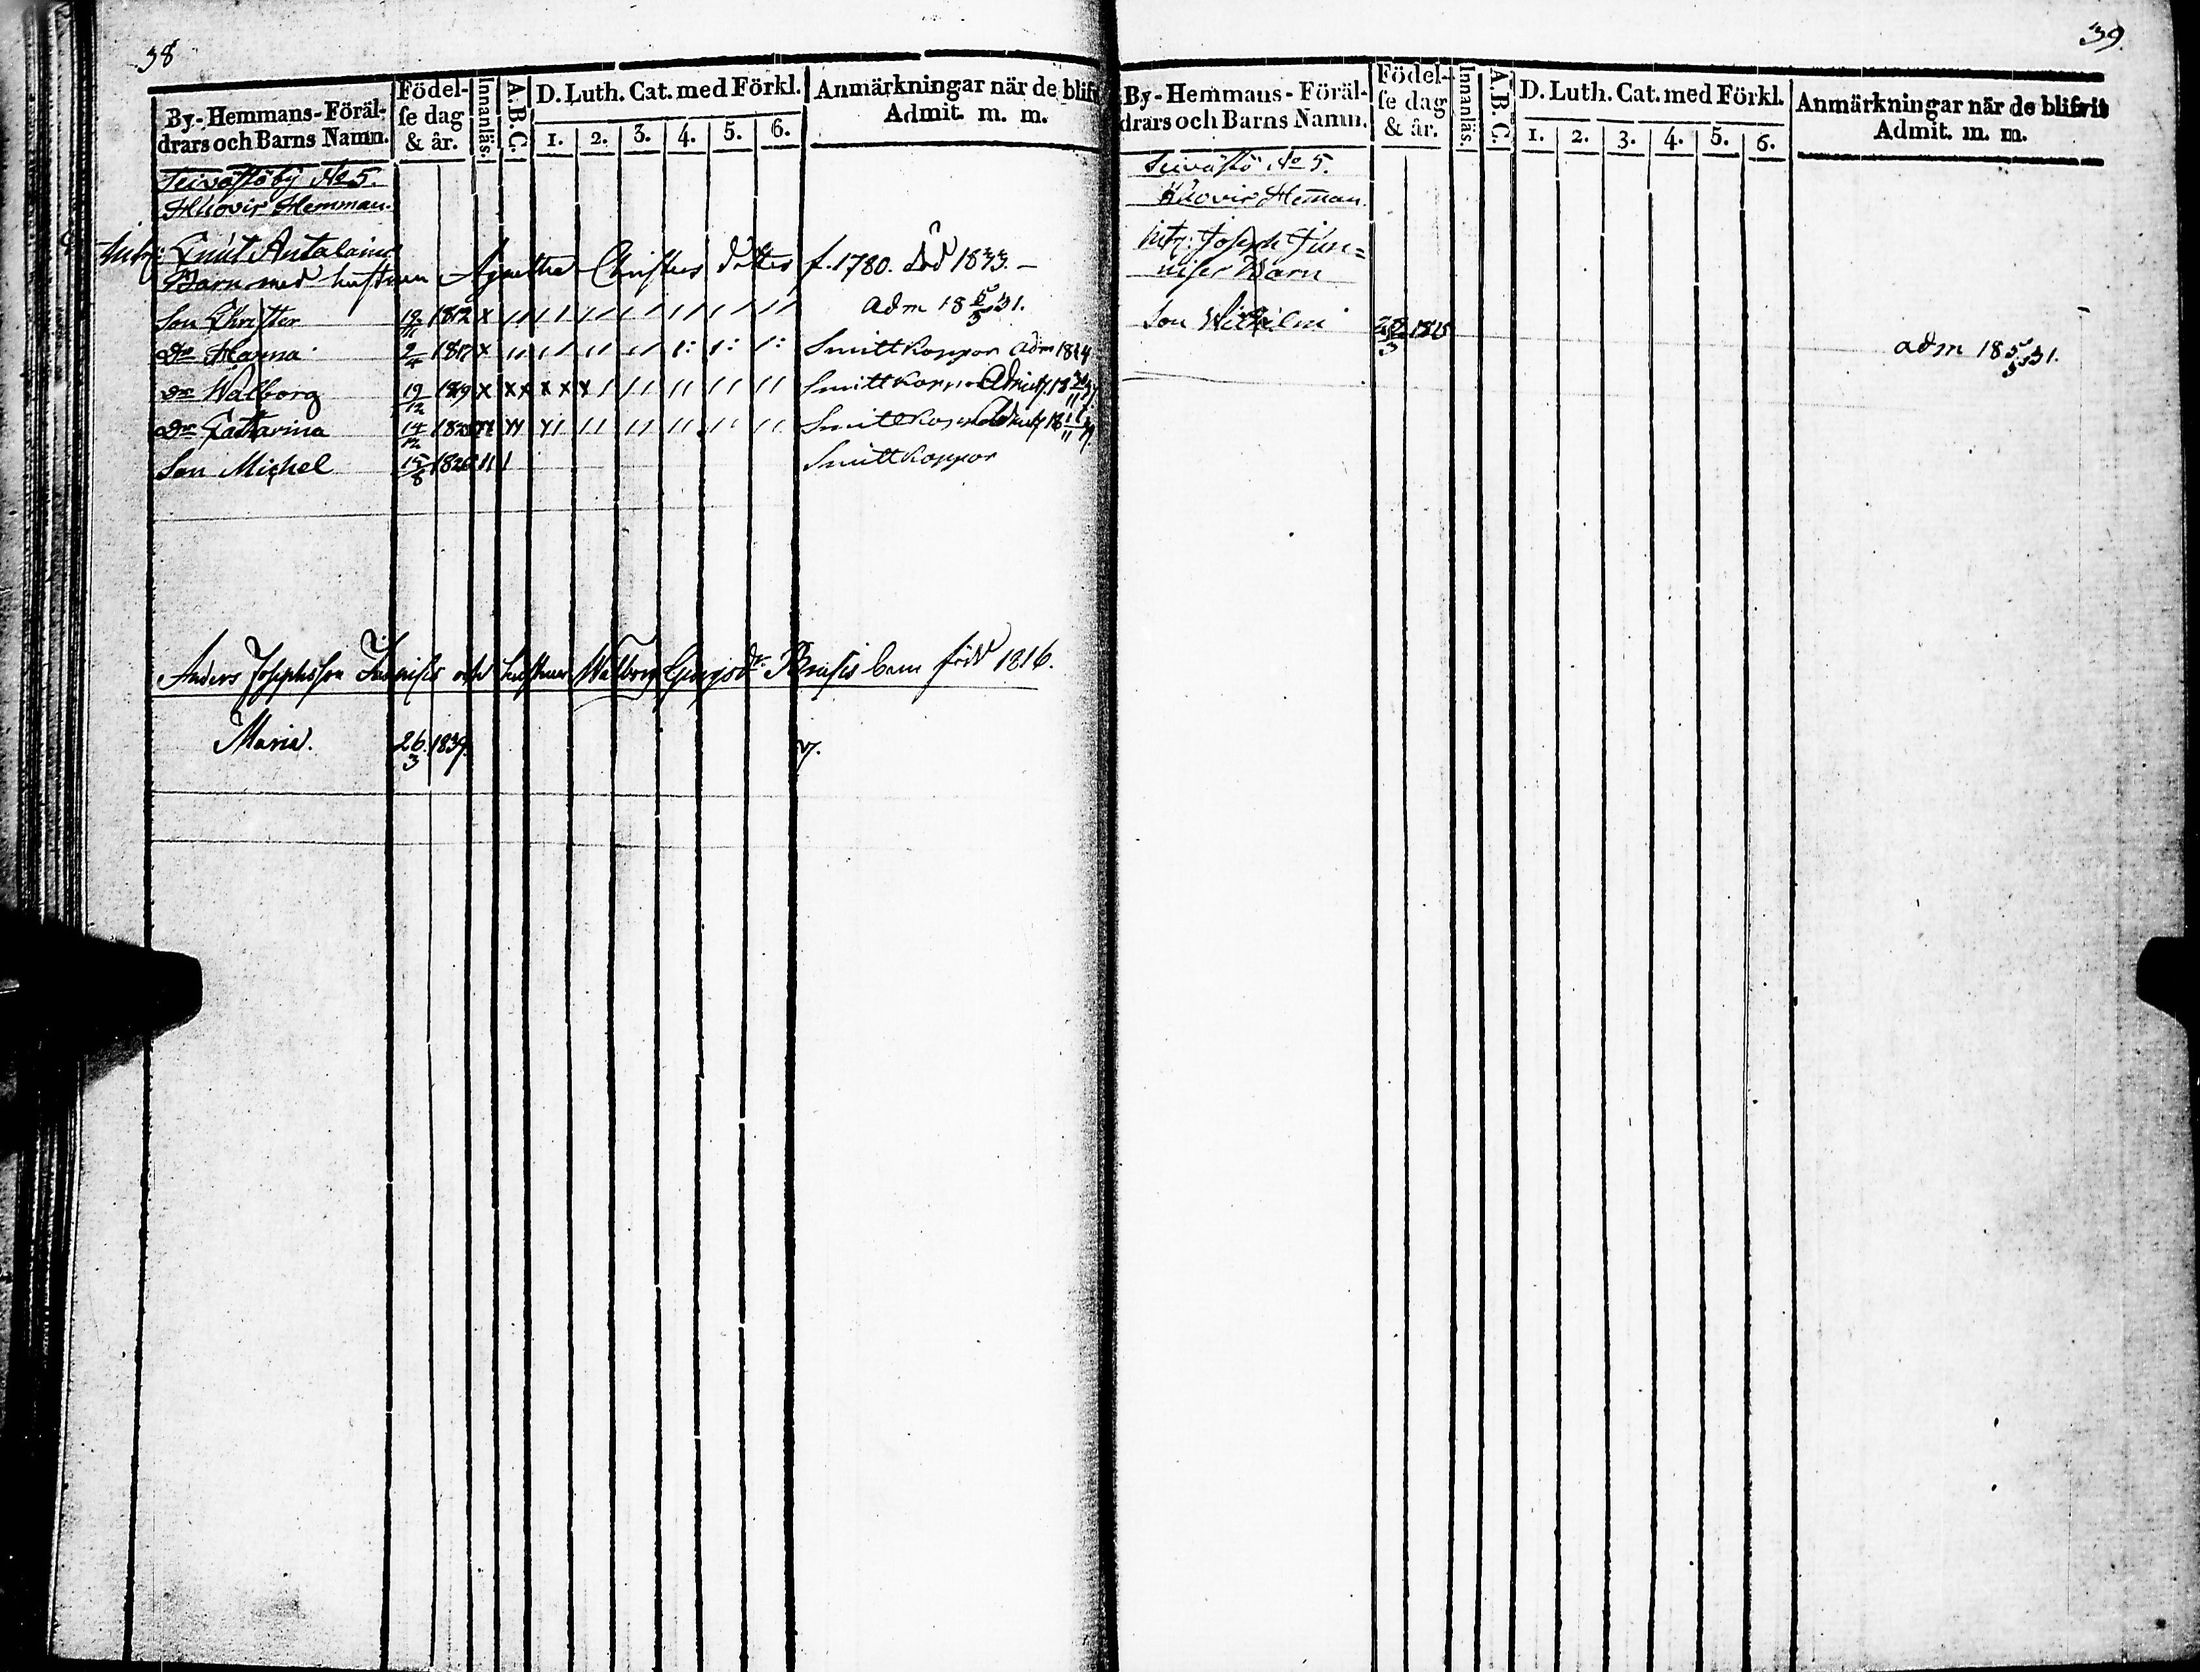 38
By-Hemmans-Föräl-
drars och Barns Namn.
Födel-
se dag
& år.
Innanläs.
A.B.C.
D. Luth. Cat. med Förkl.
1. 2. 3. 4. 5. 6.
Anmärkningar när de blifv
Admit. m. m.
Seivästö by No 5.
Huovis Hemman.
Knut Antalaine
Barn med hustrun Agnetha Christers dotter f. 1780. död 1833. –
Son Christer 1812 x // // // // // // // adm 18 5/3 31.
Dr Hanna 2/4 1817 x // // // // 1: 1: 1: Smittkoppor adm 1834
Dr Walborg 19/12 1819 x x x x x x / // // // // // Smittkoppor
Dr Catharina 14/12 // // // // // // Smittkoppor
Son Michel 15/8 1826 // / Smittkoppor
Anders Josephsson och hustrun Walborg barn född 1816.
Maria. 26/3 1839. v.
39.
By-Hemmans-Föräl-
drars och Barns Namn.
Födel-
se dag
& år.
Innanläs.
A.B.C.
D. Luth. Cat. med Förkl.
1. 2. 3. 4. 5. 6.
Anmärkningar när de blifvit
Admit. m. m.
Seivästö No 5.
Huovis Heman.
Joseph Jun=
nises Barn
Son Wilhelm 1815 adm 18 5/3 31.